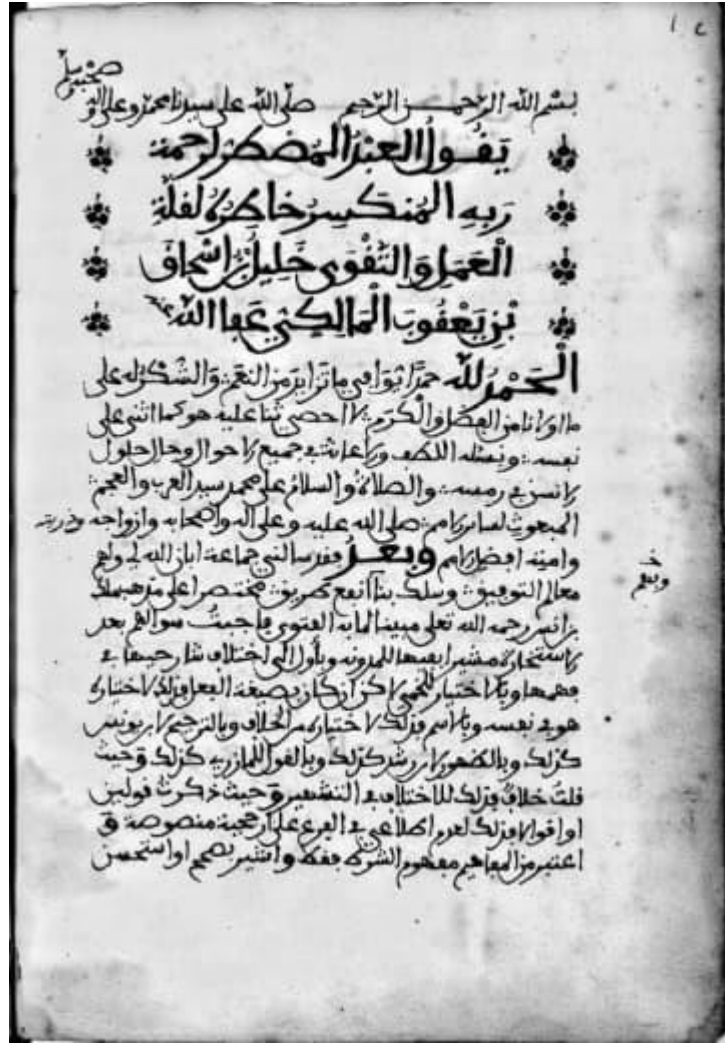 بسم الله الرحمن الرحيم صلى الله على سيدنا محمد وعلى اله
وصحبه وسلم
يقول العبد المضطر لرحمة
ربه المنكسر خاطره لقلة
العمل والتقوى خليل بن اسحاق
بن يعقوب المالكي عفا الله عنه
الحمد لله حمدا يوافي ما تزايد من النعم والشكر له على
ما اولانا من الفضل والكرم لا احصي ثنا عليه هو كما اثنى على
نفسه ونسئله اللطف والاعانة في جميع الاحوال وحال حلول
الانسن في رمسه والصلاة والسلام على محمد سيد العرب والعجم
المبعوث لسائر الامم صلى الله عليه وعلى اله واصحابه وازواجه وذريته
وامته افضل الامم وبعد فقد سالني جماعة ابان الله لي ولهم
معالم التوفيق وسلك بنا انفع طريق مختصرا على مذهب ملك
بن انس رحمه الله تعلى مبينا لما به الفتوى فاجبت سوالهم بعد
الاستخارة مشيرا بفيها للمدونة وباول الى اختلاف شارحيها في
فهمها وبالاختيار للخمي لاكن ان كان بصيغة الفعل فذلك لاختياره
هو في نفسه وبالاسم فذلك لاختياره من الخلاف وبالترجيح لابن يونس
كذلك وبالظهور لابن رشد كذلك وبالقول للمازري كذلك وحيث
قلت خلاف فذلك للاختلاف في التشهير وحيث ذكرت قولين
او اقوالا فذلك لعدم اطلاعي في الفرع على ارجحية منصوصة و
اعتبر من المفاهيم مفهوم الشرط فقط واشير بصحح او استحسن